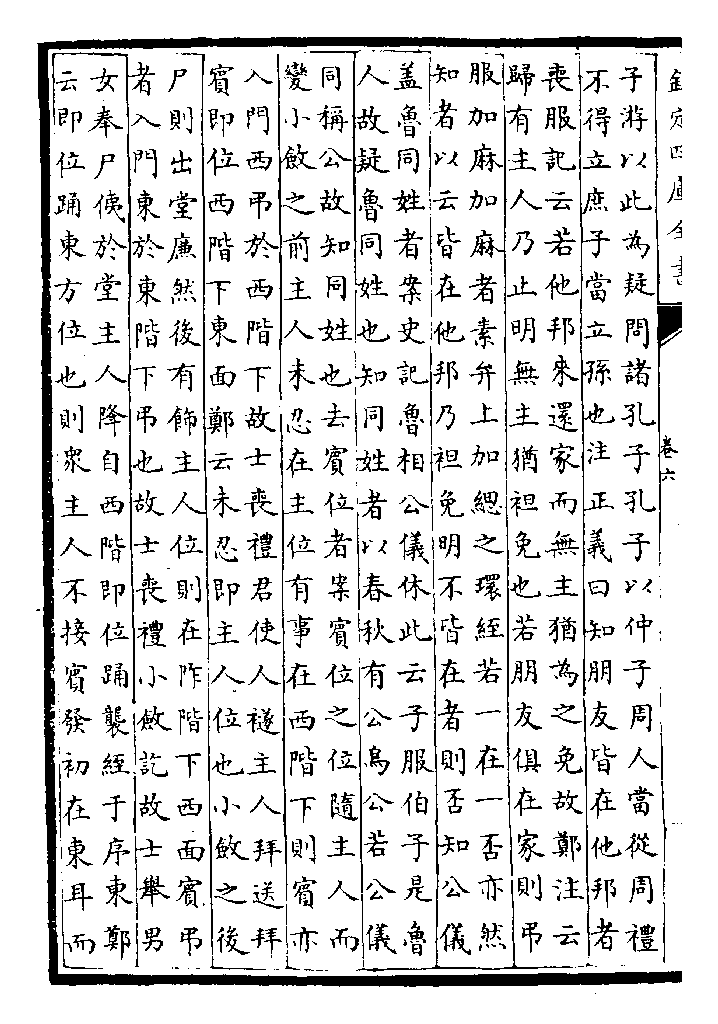 欽定四庫全書
卷六
子游以此為疑問諸孔子孔子以仲子周人當從周禮
不得立庶子當立孫也注正義曰知朋友皆在他邦者
喪服記云若他邦來還家而無主猶為之免故鄭注云
歸有主人乃止明無主猶袒免也若朋友俱在家則弔
服加麻加麻者素弁上加緦之環絰若一在一否亦然
知者以云皆在他邦乃袒免明不皆在者則否知公儀
盖魯同姓者案史記魯相公儀休此云子服伯子是魯
人故疑魯同姓也知同姓者以春秋有公鳥公若公儀
同稱公故知同姓也去賓位者案賓位之位隨主人而
變小斂之前主人未忍在主位有事在西階下則賓亦
入門西弔於西階下故士喪禮君使人襚主人拜送拜
賓即位西階下東面鄭云未忍即主人位也小斂之後
尸則出堂廉然後有飾主人位則在阼階下西面賓弔
者入門東於東階下弔也故士喪禮小斂訖故士舉男
女奉尸侇於堂主人降自西階即位踊襲絰于序東鄭
云即位踊東方位也則衆主人不接賓發初在東耳而